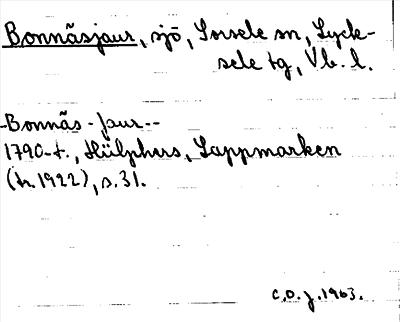 Bonnäsjaur, sjö, Sorsele sn, Lyck-
sele tg, Vb. l.
Bonnäs-Jaur--
1790-t., Hülphers, Lappmarken
(tr. 1922), s. 31.
C.O. J. 1963.